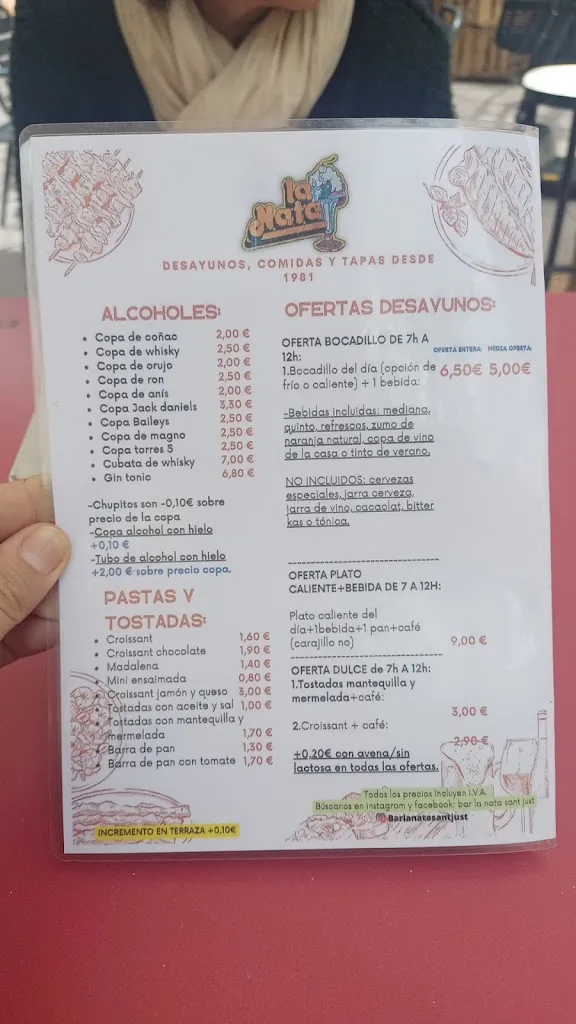 la Nata
DESAYUNOS, COMIDAS Y TAPAS DESDE
1981
ALCOHOLES:
• Copa de coñac 2,00 €
• Copa de whisky 2,50 €
• Copa de orujo 2,00 €
• Copa de ron 2,50 €
• Copa de anís 2,00 €
• Copa Jack daniels 3,30 €
• Copa Baileys 2,50 €
• Copa de magno 2,50 €
• Copa torres 5 2,50 €
• Cubata de whisky 7,00 €
• Gin tonic 6,80 €
-Chupitos son -0,10€ sobre
precio de la copa
-Copa alcohol con hielo
+0,10 €
-Tubo de alcohol con hielo
+2,00 € sobre precio copa.
PASTAS Y
TOSTADAS:
• Croissant 1,60 €
• Croissant chocolate 1,90 €
• Madalena 1,40 €
• Mini ensaimada 0,80 €
• Croissant jamón y queso 3,00 €
• Tostadas con aceite y sal 1,00 €
• Tostadas con mantequilla y
mermelada 1,70 €
• Barra de pan 1,30 €
• Barra de pan con tomate 1,70 €
INCREMENTO EN TERRAZA +0,10€
OFERTAS DESAYUNOS:
OFERTA BOCADILLO DE 7h A
12h:
OFERTA ENTERA: MEDIA OFERTA:
1.Bocadillo del día (opción de
frío o caliente) + 1 bebida:
6,50€ 5,00€
-Bebidas incluidas: mediana,
quinto, refrescos, zumo de
naranja natural, copa de vino
de la casa o tinto de verano.
NO INCLUIDOS: cervezas
especiales, jarra cerveza,
jarra de vino, cacaolat, bitter
kas o tónica.
--------------------------------
OFERTA PLATO
CALIENTE+BEBIDA DE 7 A 12H:
Plato caliente del
día+1bebida+1 pan+café
(carajillo no) 9,00 €
--------------------------------
OFERTA DULCE de 7h A 12h:
1.Tostadas mantequilla y
mermelada+café:
3,00 €
2.Croissant + café:
2,90 €
+0,20€ con avena/sin
lactosa en todas las ofertas.
Todos los precios incluyen I.V.A.
Búscanos en instagram y facebook: bar la nata sant just
Barlanatasantjust